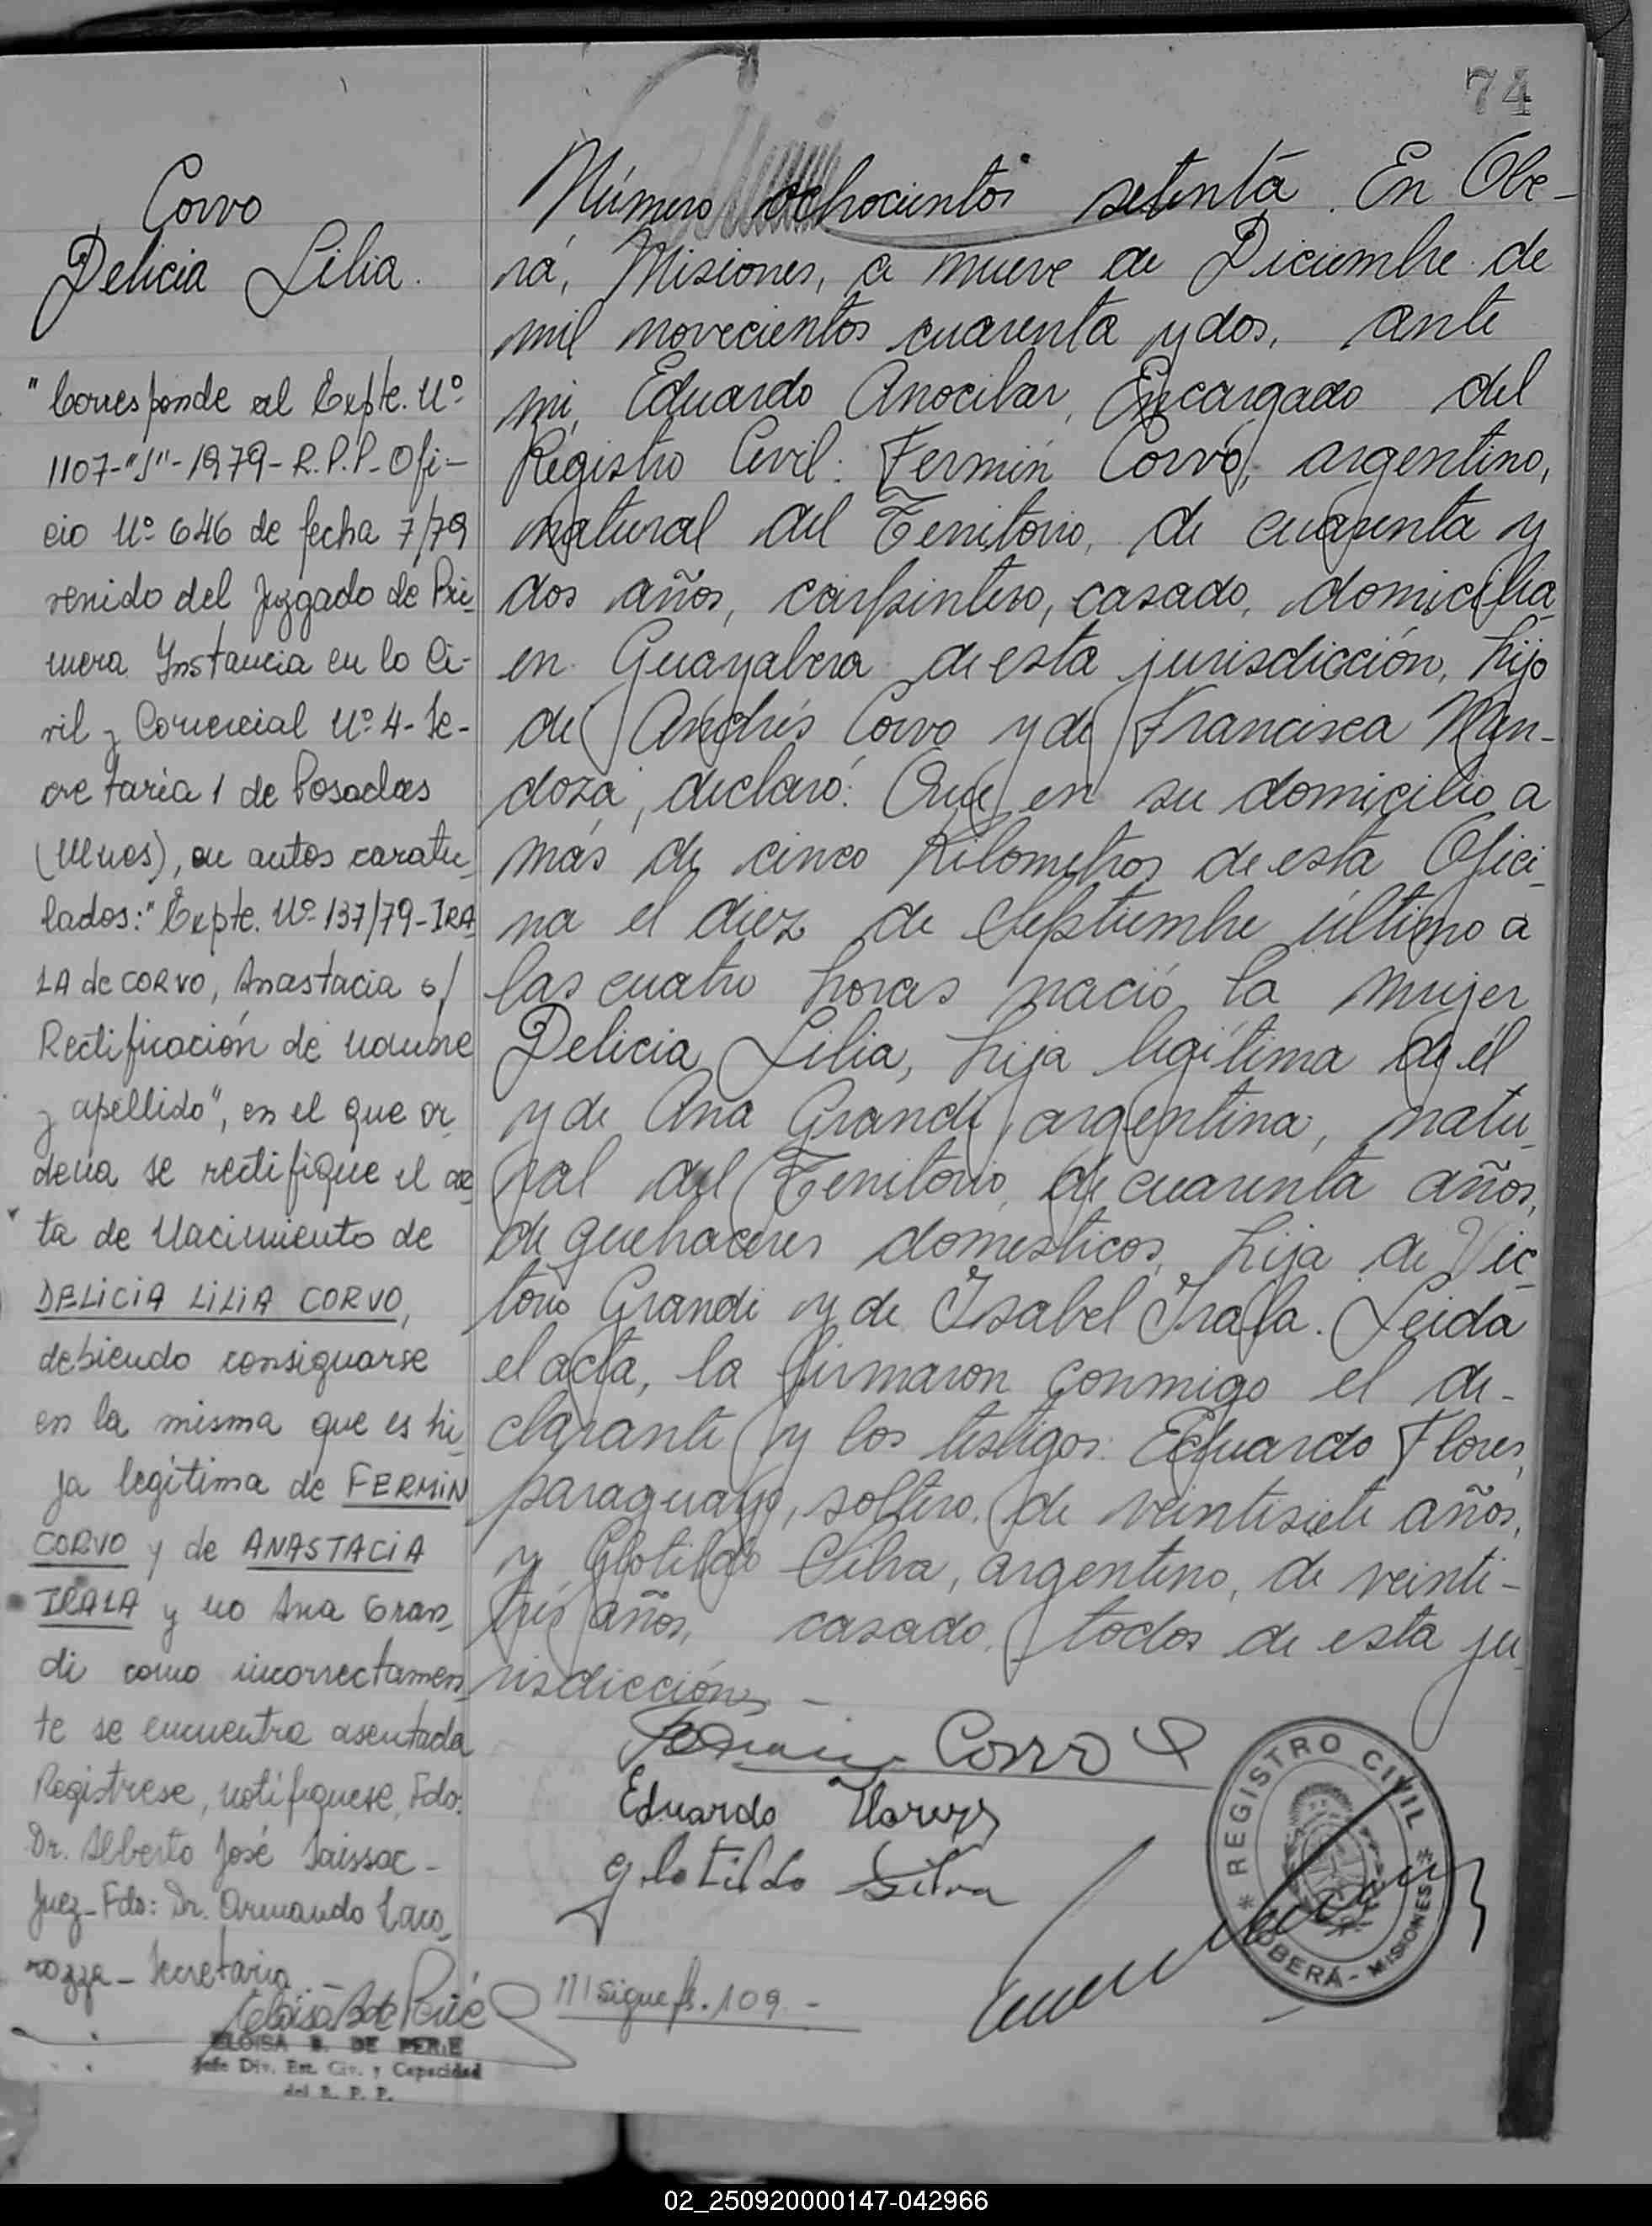 74
Corvo
Delicia Lilia.
"Corresponde al Expte. Nº
1107-"S"-1979- R.P.P- Ofi-
cio Nº 646 de fecha 7/79
venido del Juzgado de Pri-
mera Instancia en lo Ci-
vil y Comercial Nº 4- Se-
cretaría 1 de Posadas
(Mnes), en autos caratu-
lados:" Expte. Nº 137/79-IRA
LA de CORVO, Anastacia s/
Rectificación de nombre
y apellido", en el que or
dena se rectifique el ac-
ta de Nacimiento de
DELICIA LILIA CORVO,
debiendo consignarse
en la misma que es hi-
ja legítima de FERMIN
CORVO y de ANASTACIA
IRALA y no Ana Gran-
di como incorrectamen-
te se encuentra asentada
Registrese, notifiquese, Fdo:
Dr. Alberto José
Juez- Fdo: Dr. Armando
Secretaria.-
ELOISA B. DE PERIE
Jefe Div. Est. Civ. y Capacidad
del R. P. P.
Número ochocientos setenta. En Obe-
rá, Misiones, a nueve de Diciembre de
mil novecientos cuarenta y dos, ante
mi, Eduardo Anocibar, Encargado del
Registro Civil: Fermín Corvo, argentino,
natural del Territorio, de cuarenta y
dos años, carpintero, casado, domicilia
en Guayabera de esta jurisdicción, hijo
de Andrés Corvo y de Francisca Men-
doza, declaró: Que en su domicilio a
más de cinco Kilometros de esta Ofici-
na el diez de Septiembre último a
las cuatro horas nació la mujer
Delicia Lilia, hija legítima de él
y de Ana Grandi, argentina, natu-
ral del Territorio, de cuarenta años,
de quehaceres domesticos, hija de Vic-
torio Grandi y de Isabel Irala. Leida
el acta, la firmaron conmigo el de-
clarante y los testigos: Eduardo Flores,
paraguayo, soltero, de veintisiete años,
y Clotildo Silva, argentino, de veinti-
trés años, casado, todos de esta ju-
risdicción.-
Corvo
Eduardo Flores
Silva
/// sigue fs. 109 -
REGISTRO CIVIL
* OBERÁ - MISIONES *
02_250920000147-042966